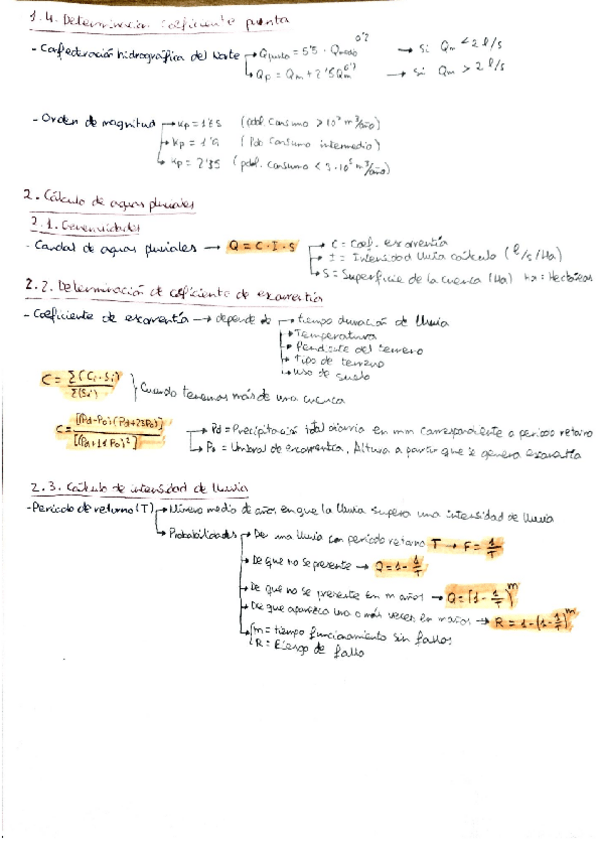 1.4. Determinación coeficiente punta
- Confederación hidrográfica del Norte → Qpunta = 5'5 · Qmedio^0'? → Si Qm < 2 l/s
→ Qp = Qm + 2'5 Qm^0'? → Si Qm > 2 l/s
- Orden de magnitud → Kp = 1'ES (pobl consumo > 10^? m³/año)
→ Kp = 1'9 (Pob consumo intermedio)
→ Kp = 2'35 (pobl. consumo < 3·10^5 m³/año)
2. Cálculo de aguas pluviales
2.1. Generalidades
- Caudal de aguas pluviales → Q = C · I · S → C = Coef. escorrentía
→ I = Intensidad lluvia cálculo (l/s/Ha)
→ S = Superficie de la cuenca (Ha) Ha = Hectáreas
2.2. Determinación de coeficiente de escorrentía
- Coeficiente de escorrentía → depende de → tiempo duración de lluvia
→ Temperatura
→ Pendiente del terreno
→ Tipo de terreno
→ Uso de suelo
C = Σ(Ci·Si) / Σ(Si) } Cuando tenemos más de una cuenca
C = [(Pd-Po)·(Pd+23Po)] / [(Pd+11Po)²] → Pd = Precipitación total diaria en mm correspondiente a periodo retorno
→ Po = Umbral de escorrentía. Altura a partir que se genera escorrentía
2.3. Cálculo de intensidad de lluvia
- Periodo de retorno (T) → Número medio de años en que la lluvia supera una intensidad de lluvia
→ Probabilidades → De una lluvia con periodo retorno T → F = 1/T
→ De que no se presente → Q = 1 - 1/T
→ De que no se presente en m años → Q = [1 - 1/T]^m
→ De que aparezca una o más veces en m años → R = 1 - (1 - 1/T)^m
{ m = tiempo funcionamiento sin fallos
R = Riesgo de fallo